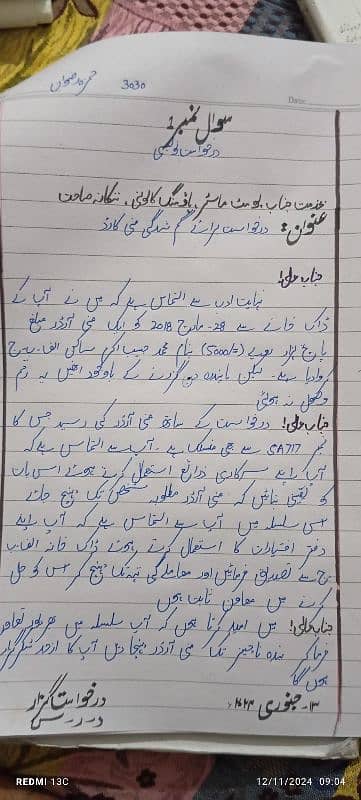 3030
Date:
سوال نمبر 1
درخواست نویسی
خدمت جناب پوسٹ ماسٹر، ہاؤسنگ کالونی، ننکانہ صاحب
عنوان: درخواست برائے گم شدگی منی آرڈر
جناب عالی!
نہایت ادب سے التماس ہے کہ میں نے آپ کے
ڈاک خانے سے 28-مارچ 2018 کو ایک منی آرڈر مبلغ
پانچ ہزار روپے (5000/=) بنام محمد حبیب اکرم ساکن الف۔
کروایا ہے۔ لیکن دن گزرنے کے باوجود انھیں یہ رقم
وصول نہ ہوئی
جناب عالی! درخواست کے ساتھ منی آرڈر کی رسید جس کا
نمبر SA717 ہے بھی منسلک ہے۔ آپ سے التماس ہے کہ
آپ اپنے سرکاری ذرائع استعمال کرتے ہوئے اس بات
کو یقینی بنائیں کہ منی آرڈر مطلوبہ شخص تک پہنچ جائے
اس سلسلہ میں آپ سے التماس ہے کہ آپ اپنے
دفتر اختیارات کا استعمال کرتے ہوئے ڈاک خانہ الف
سے تصدیق فرمائیں اور معاملے کی تہہ تک پہنچ کر اس کو حل
کرنے میں معاون ثابت ہوں
جناب عالی! میں امید کرتا ہوں کہ آپ سلسلہ میں بھرپور تعاون
فرما کر بندہ ناچیز تک منی آرڈر پہنچا دیں آپ کا ازحد شکر گزار
ہوں گا
درخواست گزار
۱۳- جنوری ۲۰۲۴ء
س۔ ر۔ س
REDMI 13C
12/11/2024 09:04